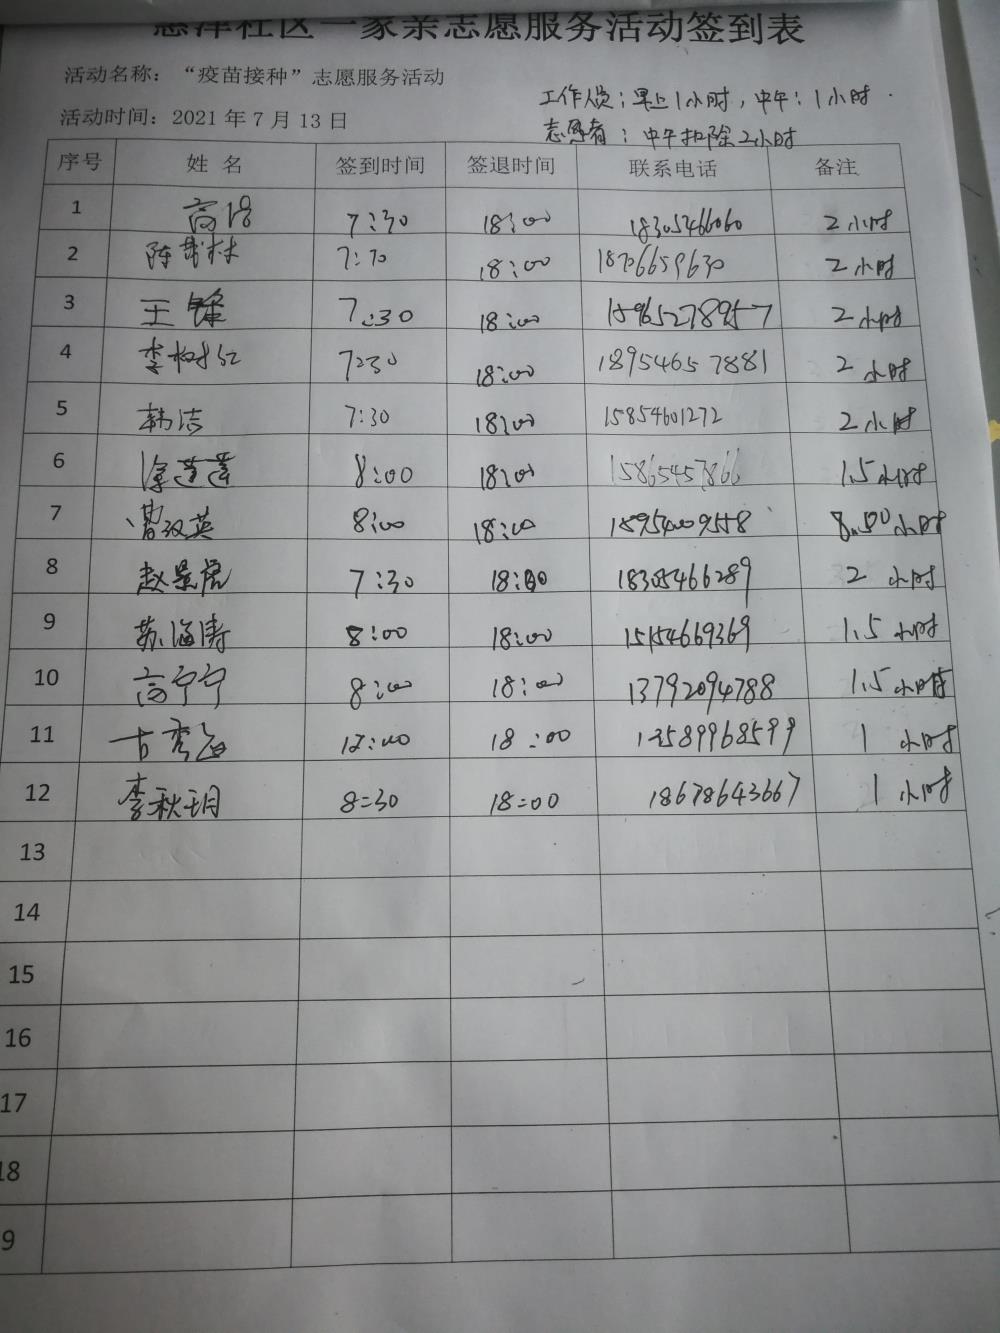 社区一家亲志愿服务活动签到表
活动名称：“疫苗接种”志愿服务活动
工作人员：早上1小时，中午：1小时．
活动时间：2021年7月13日
志愿者：中午扣除2小时
序号 姓名 签到时间 签退时间 联系电话 备注
1 7:30 18:00 18305466060 2小时
2 18:00 18706659630 2小时
3 王 7:30 18:00 15965278957 2小时
4 李树红 7:30 18:00 18954657881 2小时
5 韩洁 7:30 18:00 15854601272 2小时
6 徐莲莲 8:00 18:00 15865457866 1.5小时
7 曹汉英 8:00 18:00 8.50小时
8 赵景虎 7:30 18:00 18305466289 2小时
9 苏海涛 8:00 18:00 15154669369 1.5小时
10 高宁宁 8:00 18:00 13792094788 1.5小时
11 18:00 13589968599 1小时
12 李秋玥 8:30 18:00 18678643667 1小时
13
14
15
16
17
18
9